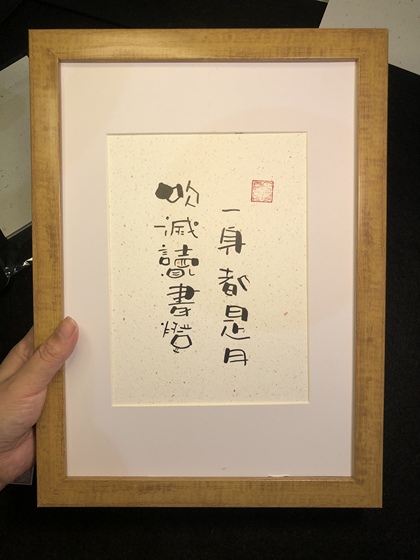 一身都是月
吹滅讀書燈